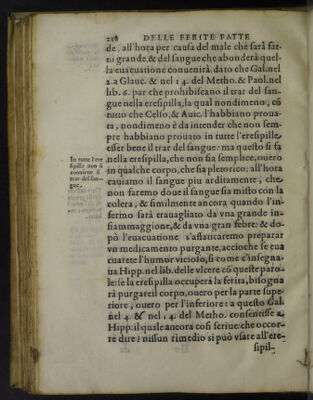 228 DELLE FERITE FATTE
de, all'hora per causa del male che sarà fat-
to grande, & del sangue che abonderà quel-
la euacuatione conuenirà, dato che Gal. nel
2. a Glauc. & nel 14. del Metho. & Paol. nel
lib. 6. par che prohibiscano il trar del san-
gue nella eresipilla, la qual nondimeno, cō
tutto che Celso, & Auic. l'habbiano proua-
ta, nondimeno è da intender che non sem-
pre habbiano prouato in tutte l'eresipille,
esser bene il trar del sangue: ma questo si fa
In tutte l'ere
sipille non si
conuiene il
trar del san-
gue.
nella eresipilla, che non sia semplice, ouero
in qualche corpo, che sia pletorico; all'hora
cauiamo il sangue piu arditamente, che
non faremo doue il sangue sia misto con la
colera, & similmente ancora quando l'in-
fermo sarà trauagliato da vna grande in-
fiammaggione, & da vna gran febre: & do-
pò l'euacuatione s'affaticaremo preparar
vn medicamento purgante, accioche se eua
cuarete l'humor vicioso, si come c'insegna-
ua Hipp. nel lib. delle vlcere cō queste paro-
le: se la eresipilla occuperà la ferita, bisogna
rà purgare il corpo, ouero per la parte supe-
riore, ouero per l'inferiore: a questo Gal.
nel 4. & nel 14. del Metho. consentisse a
Hipp. il quale ancora così scriue: che occor-
re dire; nissun rimedio si può vsare all'ere-
sipil-